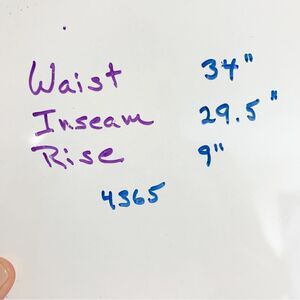 Waist 34"
Inseam 29.5"
Rise 9"
4365